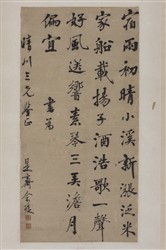 宿雨初晴小溪新漲泛米
家船載揚子酒浩歌一聲
好風送響素琴三弄澹月
偏宜 書為
晴川三兄
是齋